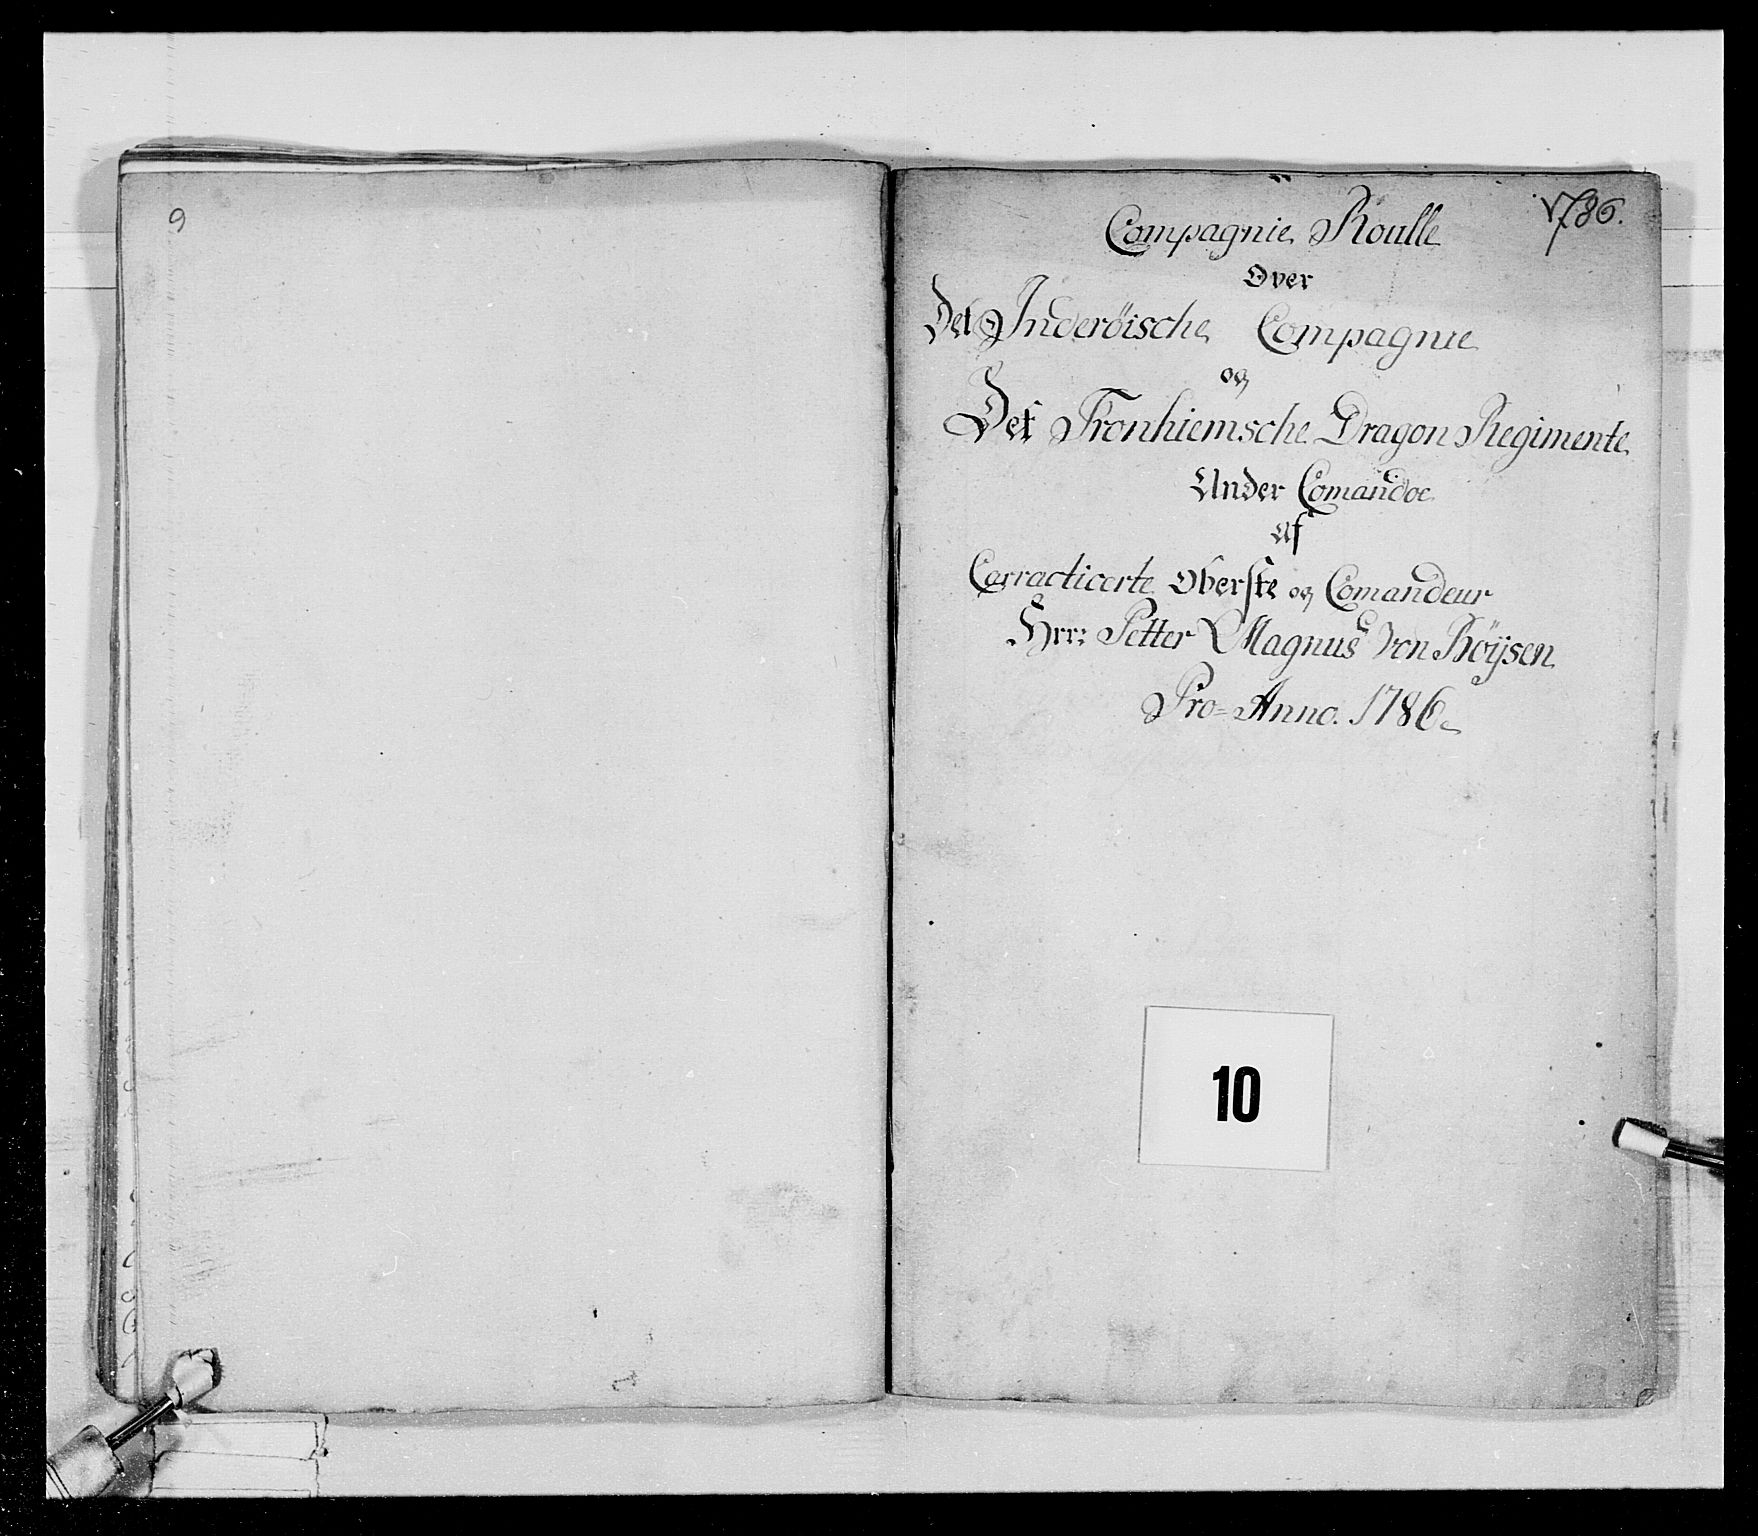 9
1786.
Compagnie Roulle
Over
Det Inderöische Compagnie
og
Det Tronhiemsche Dragon Regimente
Under Comandoe
Af
Carracticerte Oberste og Comandeur
Hrr: Petter Magnus von Köÿsen
Pro= Anno. 1786
10